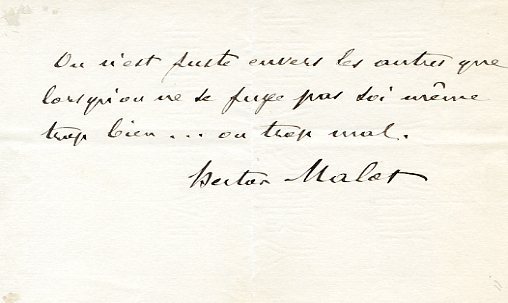 On n'est juste envers les autres que
lorsqu'on ne se juge pas soi même
trop bien... ou trop mal.
Hector Malot